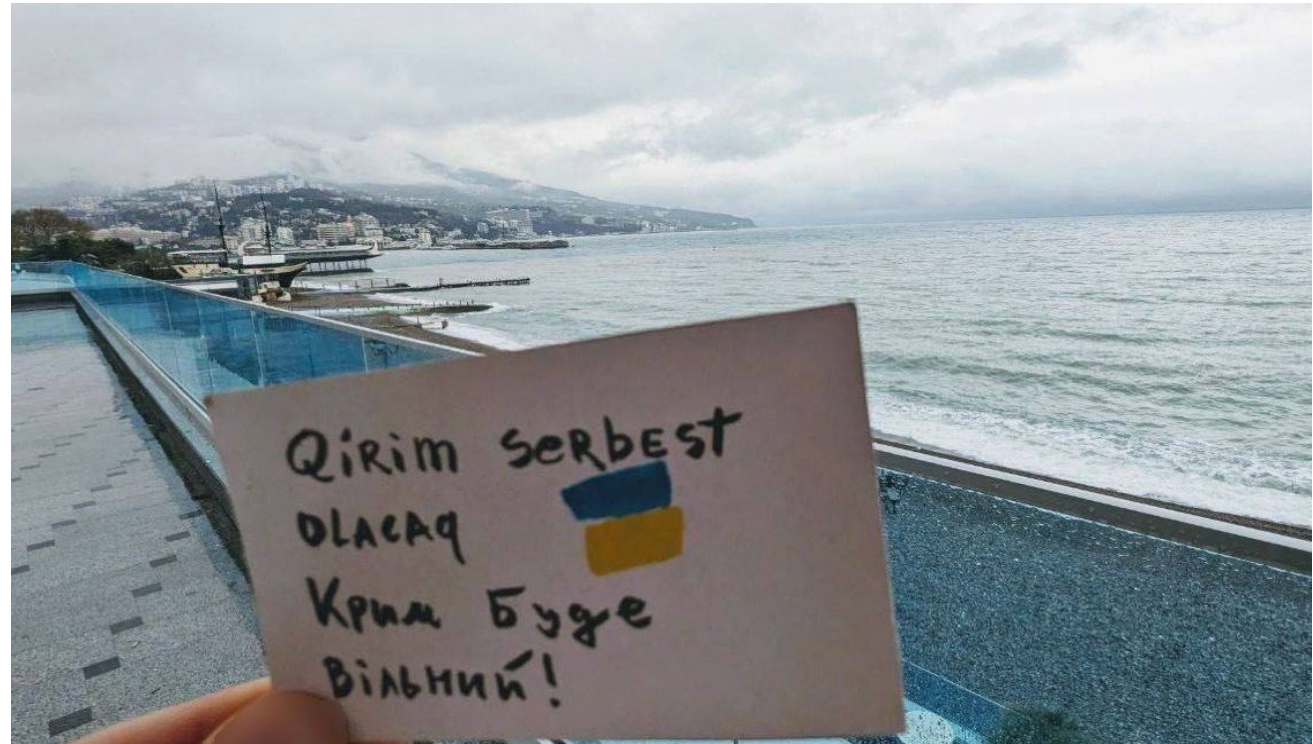 Qirim serbest
olacaq
Крим Буде
Вільний!